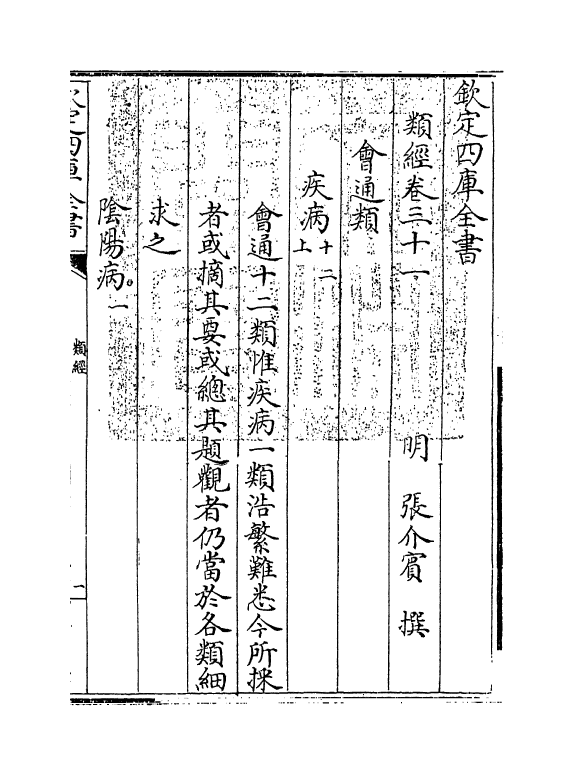 欽定四庫全書
類經卷三十一
明 張介賓 撰
會通類
疾病十二上
會通十二類惟疾病一類浩繁難悉今所採
者或摘其要或總其題觀者仍當於各類細
求之
陰陽病。一
欽定四庫全書
類經